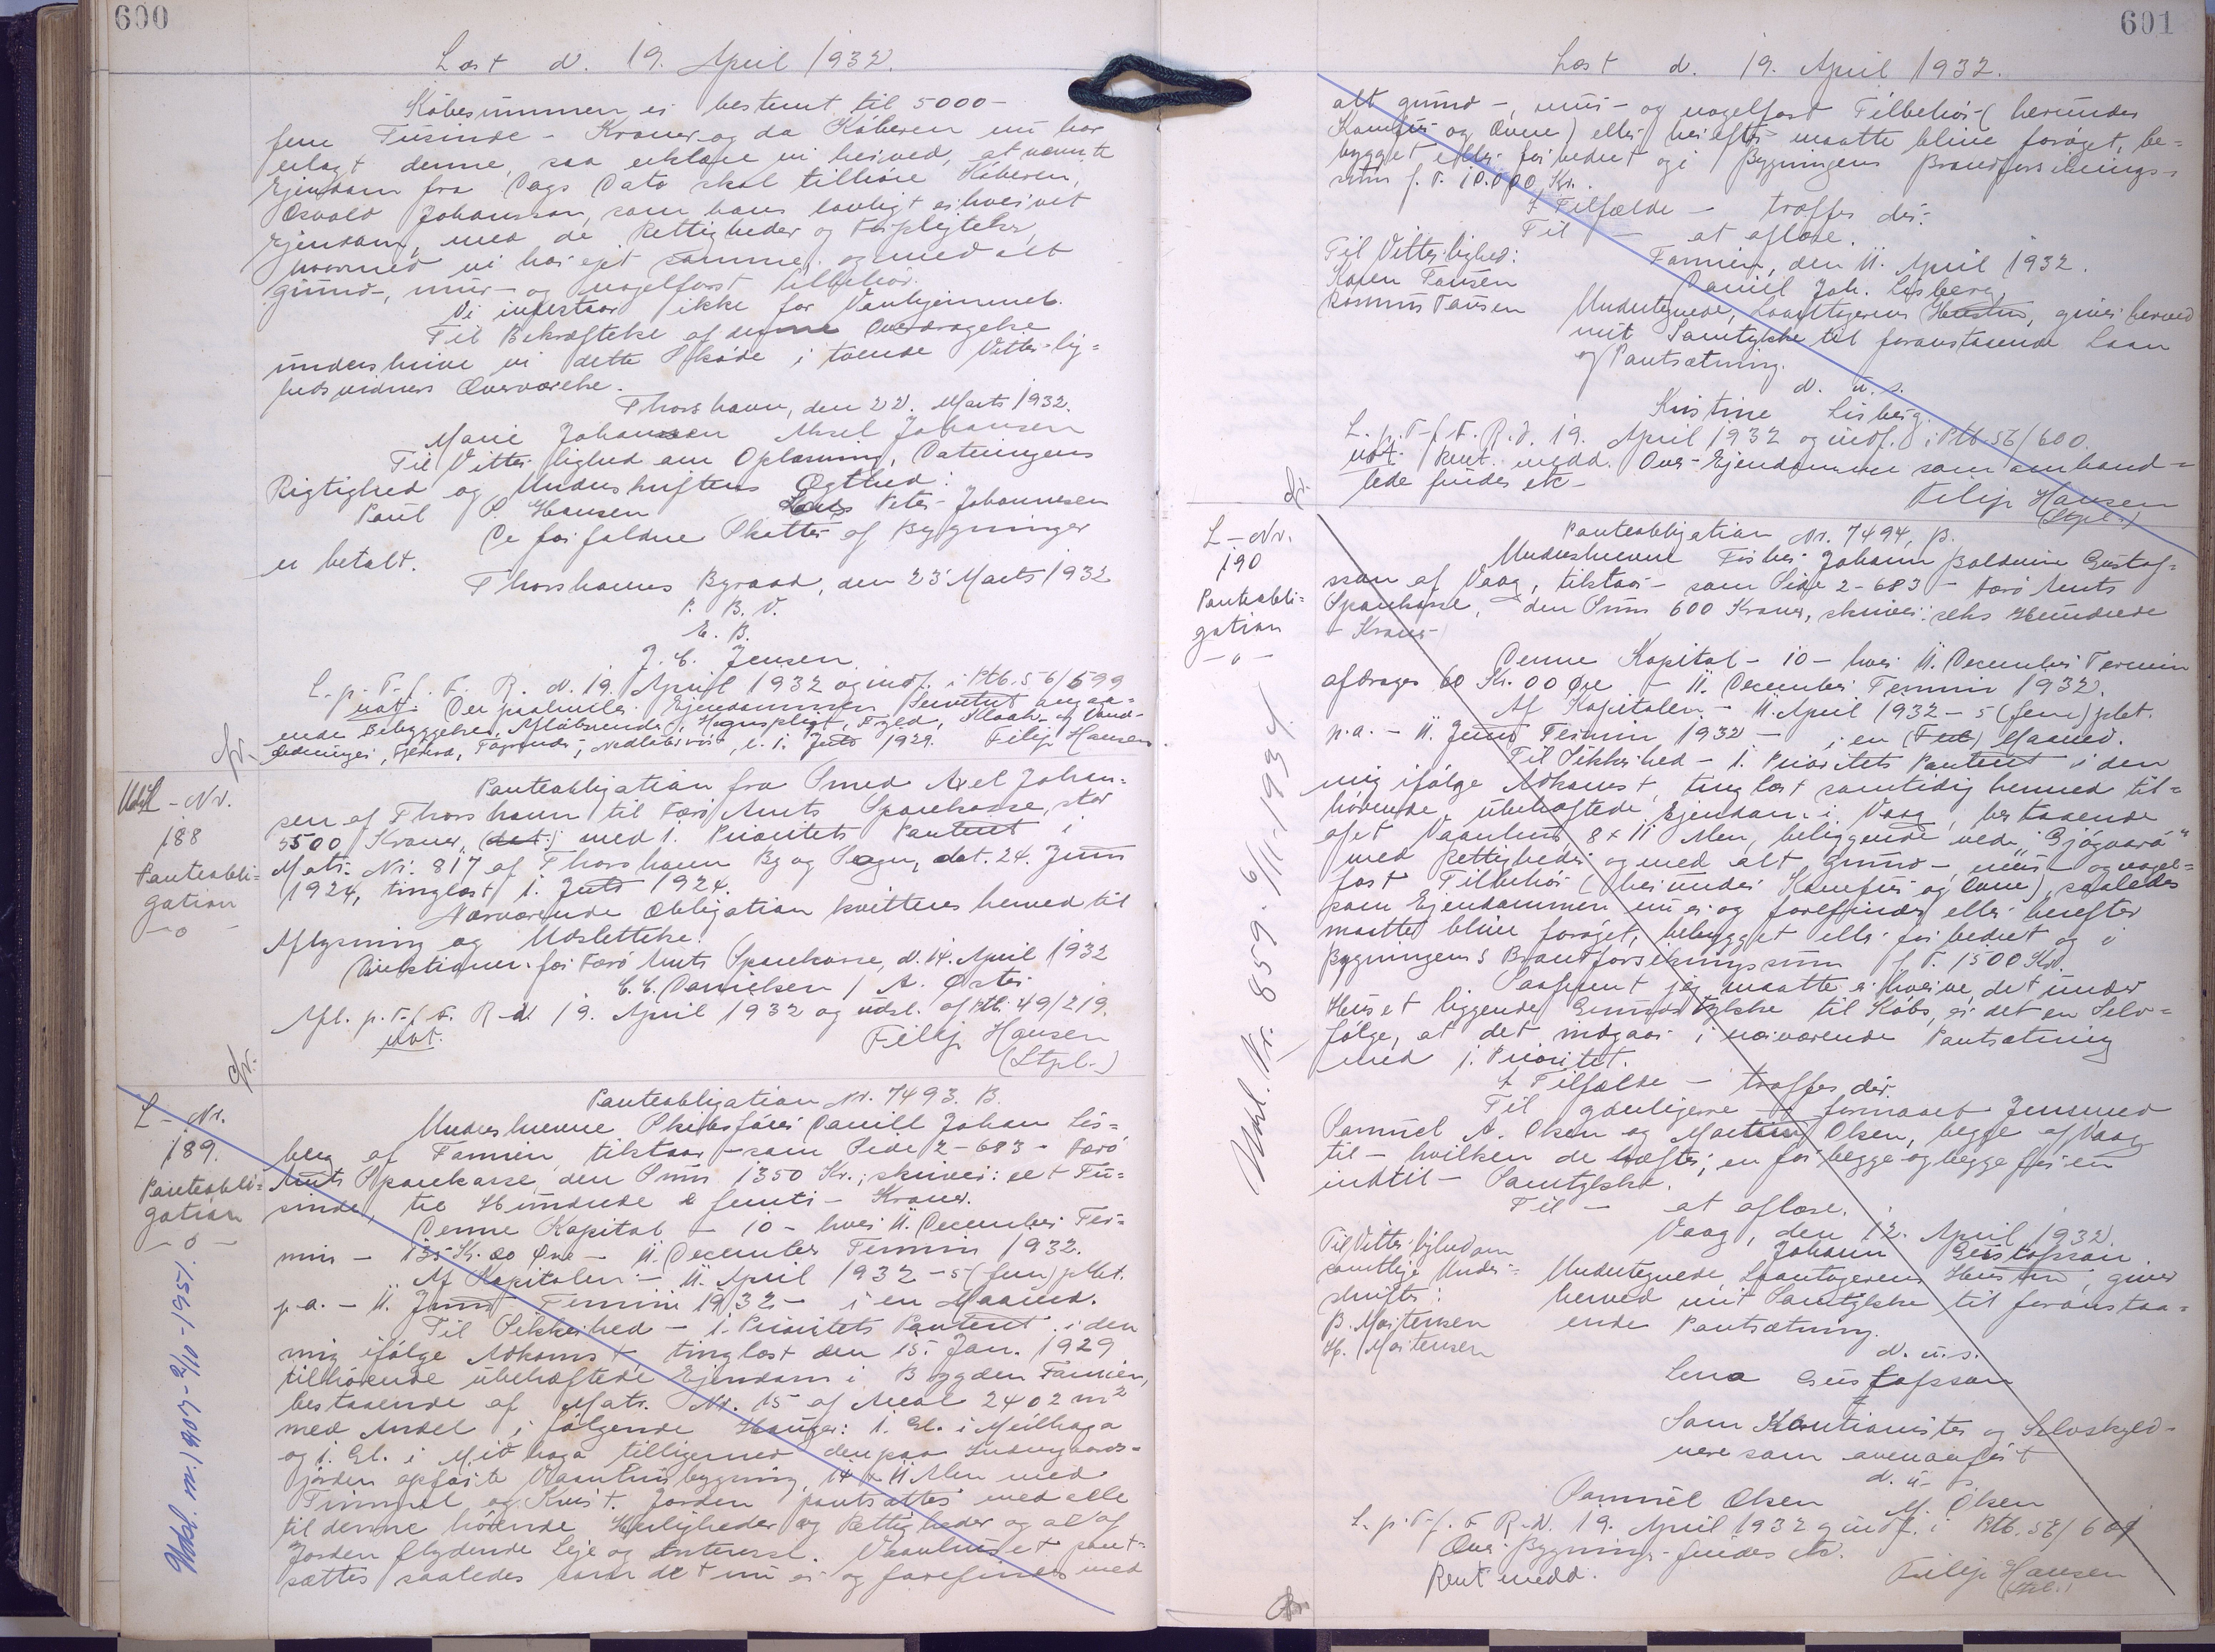 600
Læst d. 19. April 1932.
Købesummen er bestemt til 5000-
fem Tusinde - Kroner og da Køberen nu har
erlagt denne, saa erklære vi herved, at nævnte
Ejendom fra Dags Dato skal tilhøre Køberen,
Osvald Johansson, som hans lovligt erhvervet
Ejendom, med de Rettigheder og Forpligtelser,
hvormed vi har ejet samme og med alt
grund-, mur- og nagelfast Tilbehør.
Vi indestaar ikke for Vanhjemmel.
Til Bekræftelse af denne Overdragelse
underskrive vi dette Skøde i tvende Vitterlig=
hedsvidners Overværelse.
Thorshavn, den 22. Marts 1932.
Marie Johansen Aksel Johansen
Til Vitterlighed om Oplæsning, Dateringens
Rigtighed og Underskriftens Ægthed:
Paul P. Hansen Peter Johannesen
De forfaldne Skatter af Bygninger
er betalt.
Thorshavns Byraad, den 23 Marts 1932
P. B. V.
E. B.
J. C. Jensen.
L. p. T. f. F. R. d. 19. April 1932 og indf. i Ptb. 56/599
not. Der paahviler Ejendommen Servitut angaa-
ende Bebyggelse, Afløbsrender, Hegnspligt, Kloak- og Vand-
ledninger, Nedløbsrør, l. 1. Juli 1929. Filip Hansen
Udsl-Nr.
188
Panteobli=
gation
-o-
Panteobligation fra Smed Axel Johan=
sen af Thorshavn til Færø Amts Sparekasse, stor
5500 Kroner, med 1. Prioritets Panteret i
Matr. Nr. 817 af Thorshavn By og Sogn, dat. 24. Juni
1924, tinglæst 1. Juli 1924.
Nærværende Obligation kvitteres herved til
Aflysning og Udslettelse.
Direktionen for Færø Amts Sparekasse, d. 14. April 1932
C. C. Danielsen / A. Øster
Afl. p. T. f. F. R. d. 19. April 1932 og udsl. af Ptb. 49/219.
not. Filip Hansen
(Stpl.)
L-Nr.
189.
Panteobli=
gation
-o-
Udsl. nr. 1907-2/10-1951.
Panteobligation Nr. 7493. B.
Underskrevne Skibsfører Daniel Johan Lis=
berg af Famien tilstaar - som Side 2-683 - Færø
Amts Sparekasse den Sum 1350 Kr., skriver: et Tu=
sinde, tre Hundrede & femti - Kroner.
Denne Kapital - 10 - hver 11. December Ter=
min - 135 Kr. 00 Øre - 11. December Termin 1932.
Af Kapitalen - 11. April 1932 - 5 (fem) pCt.
p.a. - 11. Juni Termin 1932 - i en Maaned.
Til Sikkerhed - 1. Prioritets Panteret i den
mig ifølge Adkomst tinglæst den 15. Jan. 1929
tilhørende ubehæftede Ejendom i Bygden Famien,
bestaaende af Matr. Nr. 15 af Areal 2402 m²
med Andel i følgende Hauger: 1. Gl. i Meilhaga
og 1. Gl. i Miðhaga tilligemed den paa
jorden opførte Vaaningsbygning, 14 x 11 Alen med
Tømmer og Kvist. Jorden pantsættes med alle
til denne hørende Herligheder og Rettigheder og al af
Jorden flydende Leje og Interesse. Vaanhuset pant=
sættes saaledes som det nu er og forefindes med
601
Læst d. 19. April 1932.
alt grund-, mur- og nagelfast Tilbehør (herunder
Komfur og Ovne) eller herefter maatte blive forøget, be=
bygget eller forbedret og i Bygningens Brandforsikrings-
sum p. T. 10.000 Kr.
I Tilfælde - træffes der.
Til - at aflæse.
Til Vitterlighed: Famien, den 11. April 1932.
Karen Tausen Daniel Joh. Lisberg.
Rasmus Tausen Undertegnede, Laantagerens Hustru, giver herved
mit Samtykke til foranstaaende Laan
og Pantsætning.
d. u. s.
Kristine Lisberg.
L. p. T. f. F. R. d. 19. April 1932 og indf. i Ptb. 56/600.
not. Rent. medd. Over-Ejendommen som omhand=
lede findes etc-
Filip Hansen
(Stpl.)
L-Nr.
190
Panteobli=
gation
-o-
Udsl. Nr. 859. 6/11-1934.
Panteobligation Nr. 7494. B.
Underskrevne Fisker Johann Baldvin Gustaf=
sson af Vaag, tilstaar - som Side 2-683 - Færø Amts
Sparekasse, den Sum 600 Kroner, skriver: seks Hundrede
- Kroner
Denne Kapital - 10 - hver 11. December Termin
afdrages 60 Kr. 00 Øre - 11. December Termin 1932.
Af Kapitalen - 11. April 1932 - 5 (fem) pCt.
p.a. - 11. Juni Termin 1932 - i en Maaned.
Til Sikkerhed - 1. Prioritets Panteret i den
mig ifølge Adkomst, tinglæst samtidig hermed til=
hørende ubehæftede Ejendom i Vaag, bestaaende
af et Vaanhus, 8 x 11 Alen, beliggende ved "Gjógvará"
med Rettigheder og med alt grund-, mur- og nagel=
fast Tilbehør (herunder Komfur og Ovne), saaledes
som Ejendommen nu er og forefindes eller herefter
maatte blive forøget, bebygget eller forbedret og i
Bygningens Brandforsikringssum p. T. 1500 Kr.
Saafremt jeg maatte erhverve det under
Huset liggende Grundstykke til Købs, er det en Selv=
følge, at det indgaar i nærværende Pantsætning
med 1. Prioritet.
I Tilfælde - træffes der.
Til yderligere - formaaet Jensmed
Samuel A. Olsen og Martin Olsen, begge af Vaag
til - hvilken de hæfte, en for begge og begge for en
indtil - Samtykke.
Til - at aflæse.
Vaag, den 12. April 1932.
Til Vitterlighed om Johann Gustafsson
samtlige Under= Undertegnede, Laantagerens Hustru, giver
skrifter: herved mit Samtykke til foranstaa=
B. Mortensen ende Pantsætning.
H. Mortensen d. u. s.
Lena Gustafsson
Som Kautionister og Selvskyld-
nere som ovenanført
d. u. s
Samuel Olsen M. Olsen
L. p. T. f. F. R. d. 19. April 1932 og indf. i Ptb. 56/601
Over Bygning findes etc.
Rent medd. Filip Hansen
(Stpl.)